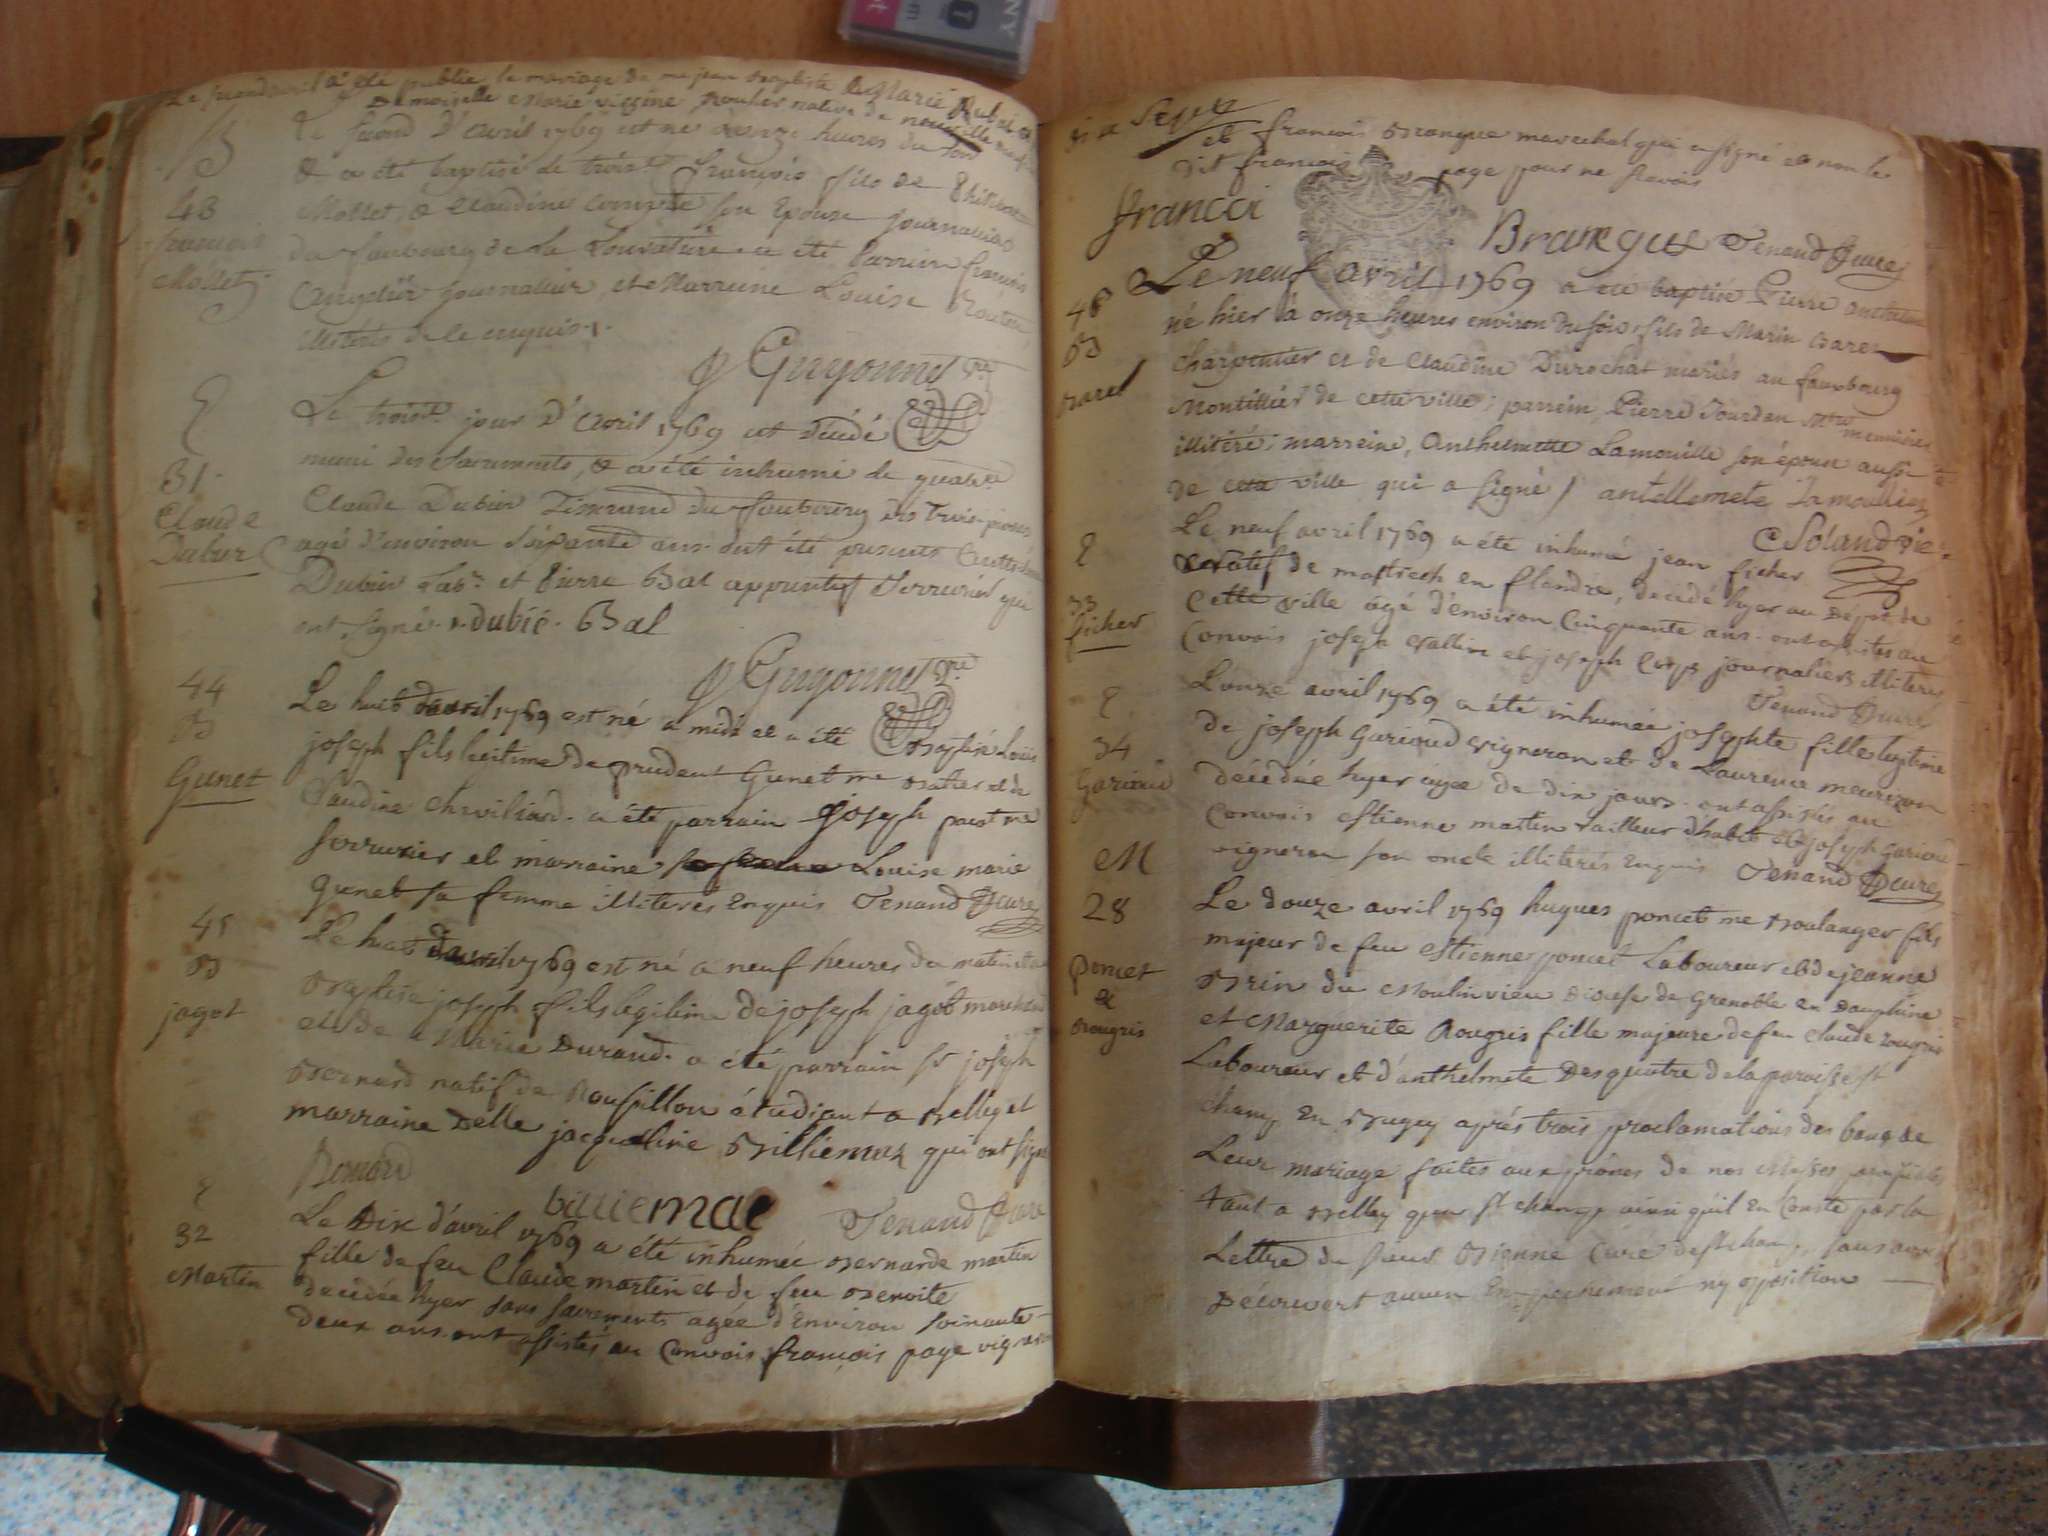 NY
Le second avril a été publié le mariage de me jean baptiste
Demoiselle Marie native de
B
Le second d'avril 1769 est né à onze heures du soir
& a été baptisé le trois.e françois fils de
43
Mollet, & Claudine son Epouse journalier
françois
du faubourg de La a été Parrein françois
Mollet
journalier, et Marreine Louise
illiterés de ce enquis
Guyonnet vre
E
Le trois.e jour d'avril 1769 est décédé
muni des sacrements, & a été inhumé le quatre
31
Claude Dubier Tisserand du faubourg des trois
Claude
agé d'environ soixante ans. ont été presents
Dubier
Dubier Lab.r et Pierre Bal apprentif serrurier qui
ont signé. dubié. Bal
Guyonnet vre
44
Le huit davril 1769 est né a midi et a été baptisé Louis
B
joseph fils legitime de prudent Gunet me et de
Gunet
Claudine a été parrain joseph me
serrurier et marraine Louise marie
Gunet sa femme illiterés Enquis Tenand Curé
45
Le huit davril 1769 est né a neuf heures du matin et a
B
baptisé joseph fils legitime de joseph jagot marchand
jagot
et de Marie Durand. a été parrain sr joseph
Bernard natif de Roussillon étudiant a Belley et
marraine Delle jacqueline Billiemaz qui ont signé
Bernard
billiemaz Tenand Curé
E
Le dix d'avril 1769 a été inhumée Bernarde martin
32
fille de feu Claude martin et de feu Benoite
Martin
decedée hyer sans sacrements agée d'environ soixante
deux ans. ont assistés au Convois françois page vigneron
dix Sept
et françois Brangue marechal qui a signé et non le
dit françois page pour ne sçavoir
francoi Brangue Tenand Curé
46
Le neuf avril 1769 a été baptisé Pierre anthelme
B
né hier à onze heures environ du soir, fils de Marin Baret
Baret
charpentier et de Claudine Durochat mariés au fauxbourg
Montillier de cette ville; parrein, Pierre Jourdan Mtre menuisier
illiteré; marreine, Anthelmette Lamouille son épouse aussi
de cette ville qui a signé / antellemete Lamoulie
Soland vic.
E
Le neuf avril 1769 a été inhumé jean ficher
natif de mastrech en flandre, decedé hyer au Dépot de
33
cette ville agé d'environ Cinquante ans. ont assistés au
ficher
Convois joseph Vallin et joseph journaliers illiterés
Tenand Curé
E
L'onze avril 1769 a été inhumée josephte fille legitime
34
de joseph Garioud vigneron et de Laurence
Garioud
decedée hyer agée de dix jours. ont assistés au
Convois Estienne martin tailleur d'habit et joseph Garioud
vigneron son oncle illiterés Enquis Tenand Curé
M
28
Le douze avril 1769 hugues poncet me Boulanger fils
majeur de feu Estienne poncet Laboureur et de jeanne
Poncet
Brin du Moulinvieu Diocese de Grenoble en Dauphine
&
et Marguerite Rougris fille majeure de feu Claude rougris
Rougris
Laboureur et d'anthelmete Desquatre de la paroisse st
champ En Bugey aprés trois proclamations des bans de
Leur mariage faites aux prônes de nos Messes
tant a Belley qu'a st champ ainsi qu'il En Conste par la
Lettre du sieur Curé de st champ, sans avoir
Découvert aucun Enpechement ny oposition